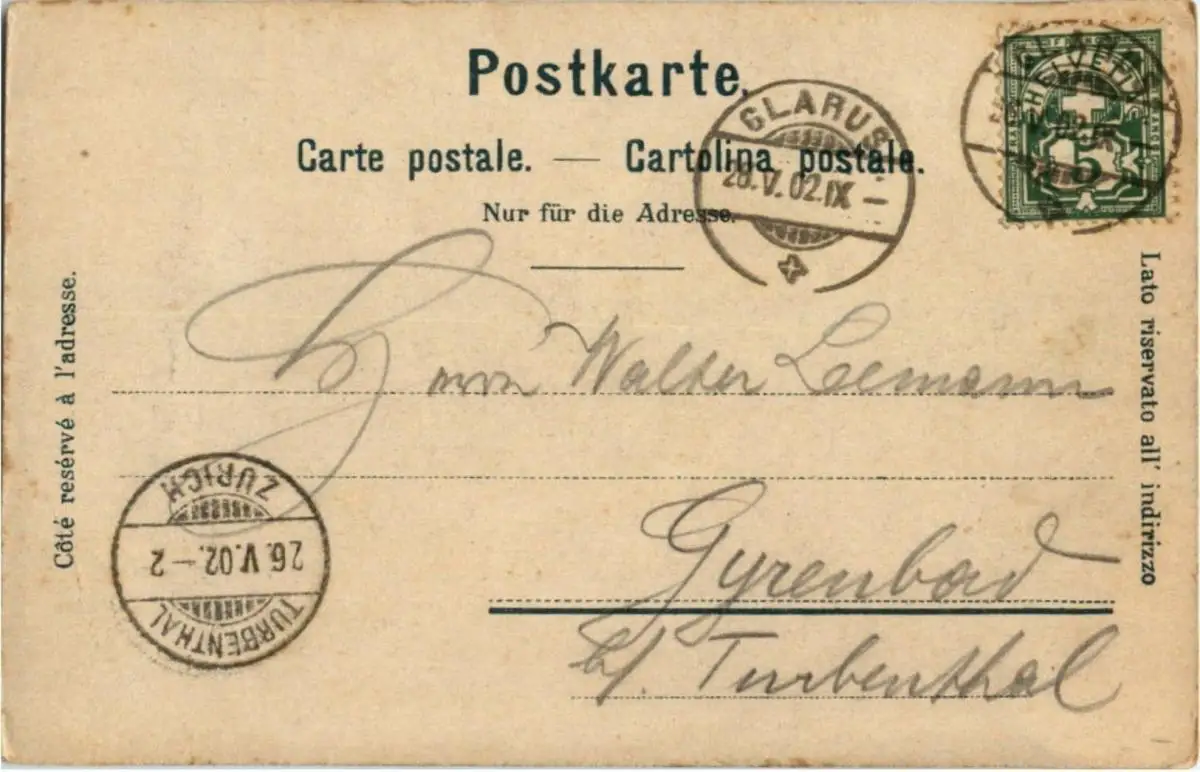 Postkarte.
Carte postale. — Cartolina postale.
Nur für die Adresse.
HELVETIA
5
GLARUS
26.V.02.IX –
Côté resérvé à l'adresse.
Lato riservato all' indirizzo
Herrn Walter Leemann
Gyrenbad
b/. Turbenthal
ZÜRICH
26.V.02.–2
TURBENTHAL